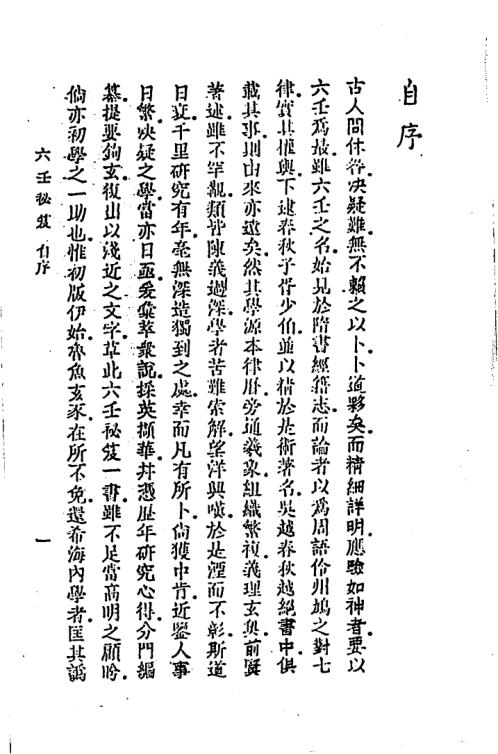 自序
古人問休咎決疑難無不賴之以卜卜道夥矣而精細詳明應驗如神者要以
六壬爲最雖六壬之名始見於隋書經籍志而論者以爲周語伶州鳩之對七
律實其權輿下逮春秋子胥少伯並以精於是術著名吳越春秋越絕書中俱
載其事則由來亦遠矣然其學源本律厤旁通羲象組織繁複義理玄奧前賢
著述雖不罕覯類皆陳義過深學者苦難索解望洋興嘆於是湮而不彰斯道
日衰千里研究有年毫無深造獨到之處幸而凡有所卜尙獲中肯近鑒人事
日繁決疑之學當亦日亟爰彙萃衆說採英擷華幷憑歷年研究心得分門編
纂提要鉤玄復出以淺近之文字草此六壬祕笈一書雖不足當高明之顧盼
倘亦初學之一助也惟初版伊始魯魚玄豕在所不免還希海內學者匡其譌
六壬祕笈 自序
一